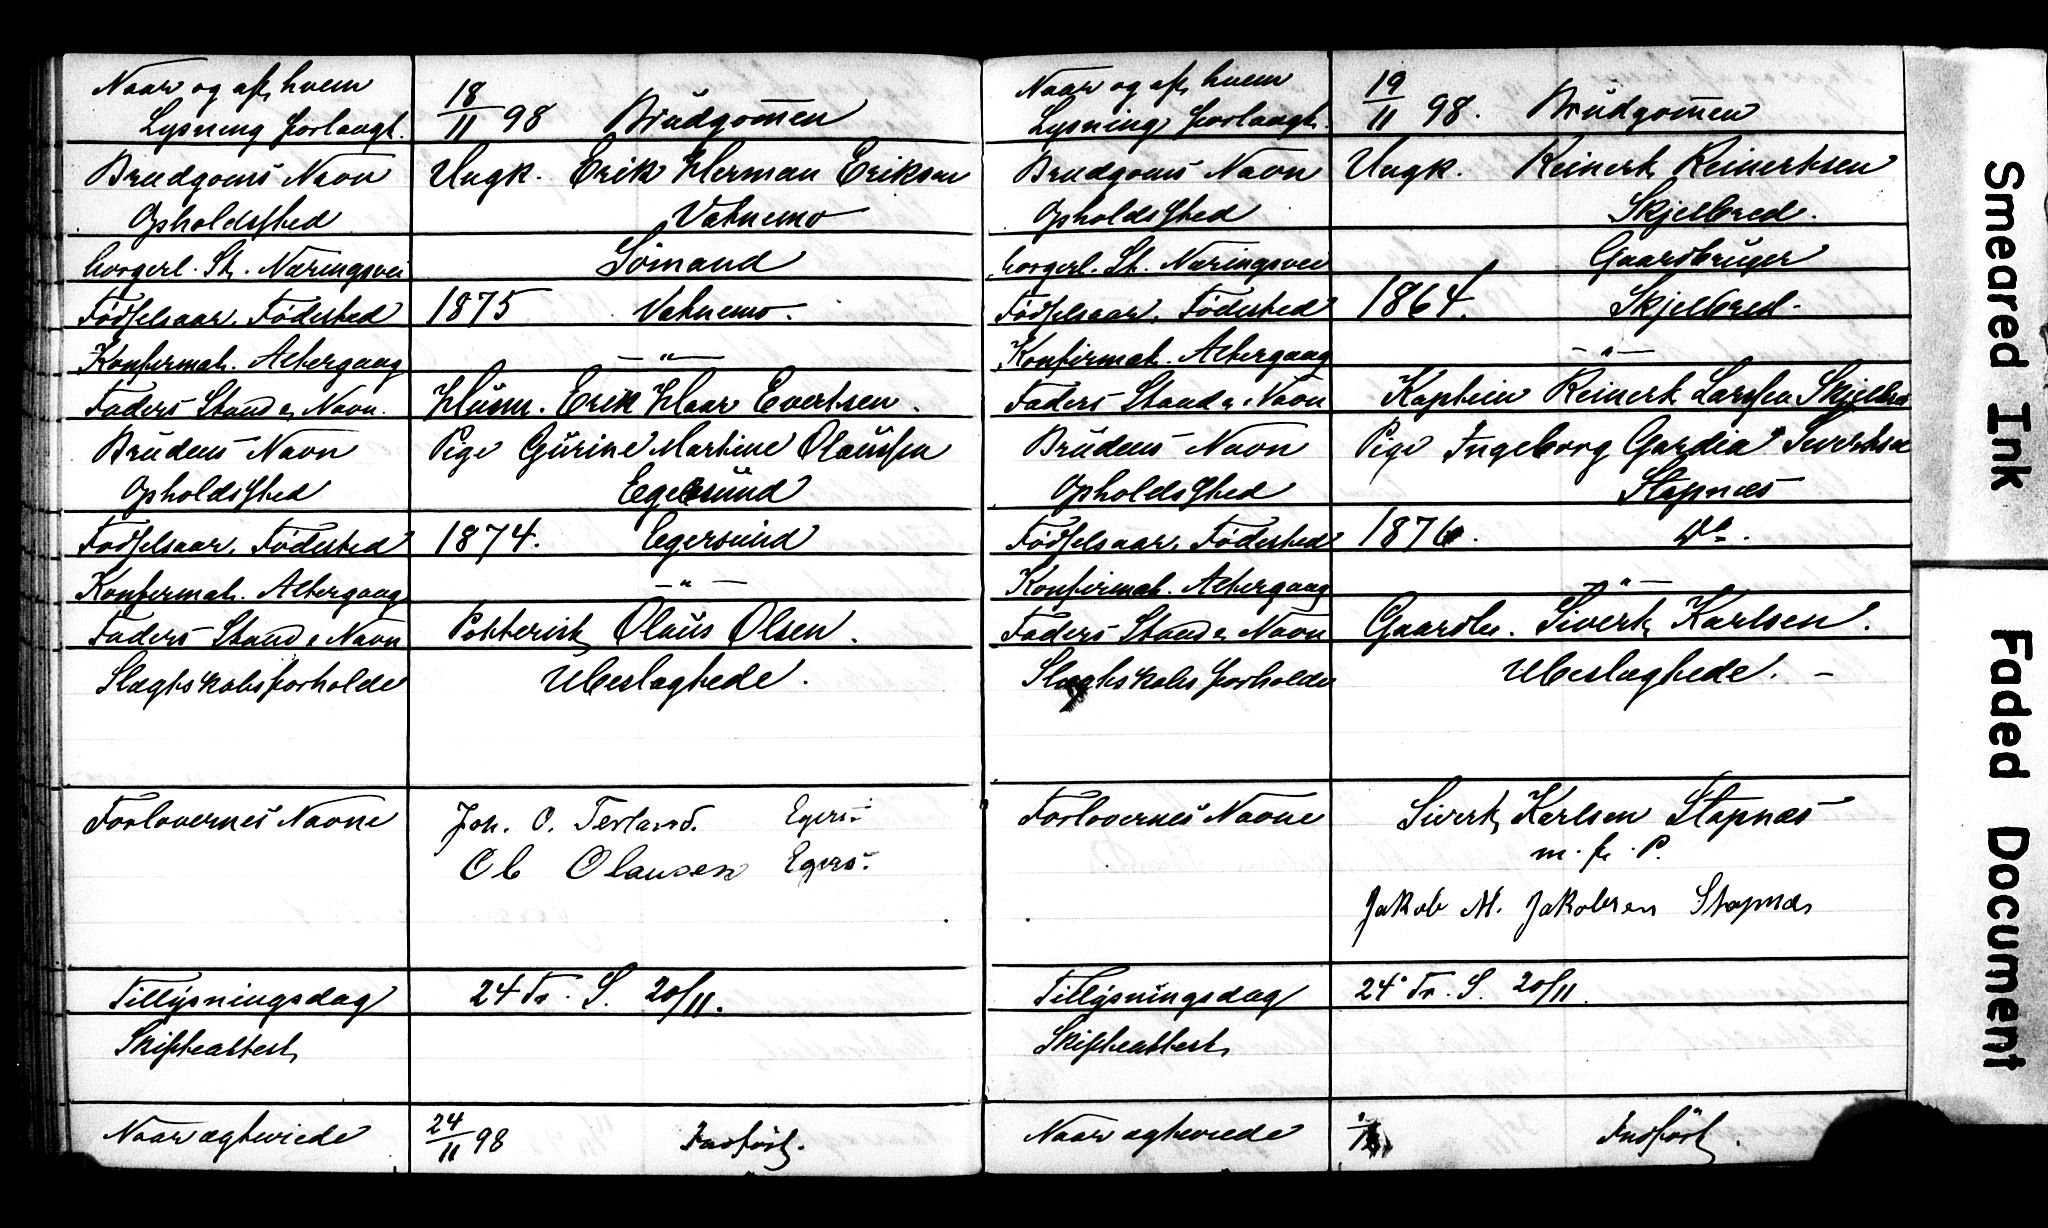 Naar og af hvem
Lysning forlangt. 18/11 98 Brudgommen
Brudgoms Navn Ungk. Erik Herman Eriksen
Opholdssted Vatnemo
borgerl. St. Næringsvei Sömand
Födselsaar. Födested 1875 Vatnemo.
Konfirmat. Altergang — " —
Faders Stand & Navn. Husm. Erik Haar Evertsen.
Brudens Navn Pige Gurine Martine Olaussen
Opholdssted Egersund
Födselsaar. Födested 1874. Egersund
Konfirmat. Altergang — " —
Faders Stand & Navn Olaus Olsen.
Slægtskabsforholde Ubeslægtede.
Forlovernes Navne Joh. O. Terland. Egers.
Ol Olausen Egers.
Tillysningsdag 24 Tr. S. 20/11.
Skifteattest
Naar ægteviede 24/11 98 Indfört.
Naar og af hvem
Lysning forlangt. 19/11 98. Brudgommen
Brudgoms Navn Ungk. Reinert Reinertsen
Opholdssted Skjelbred.
borgerl. St. Næringsvei Gaardbruger
Födselsaar. Födested 1864. Skjelbred.
Konfirmat. Altergang — " —
Faders Stand & Navn Kaptein Reinert Larssen Skjelbre
Brudens Navn Pige Ingeborg Gardia Sivertsen
Opholdssted Stapnæs
Födselsaar. Födested 1876. Do.
Konfirmat. Altergang — " —
Faders Stand & Navn Gaardbr. Sivert Karlsen.
Slægtskabsforholde Ubeslægtede. —
Forlovernes Navne Sivert Karlsen Stapnæs
m. f. P.
Jakob M. Jakobsen Stapnæs
Tillysningsdag 24 Tr. S. 20/11.
Skifteattest
Naar ægteviede Indfört.
Smeared Ink
Faded Document